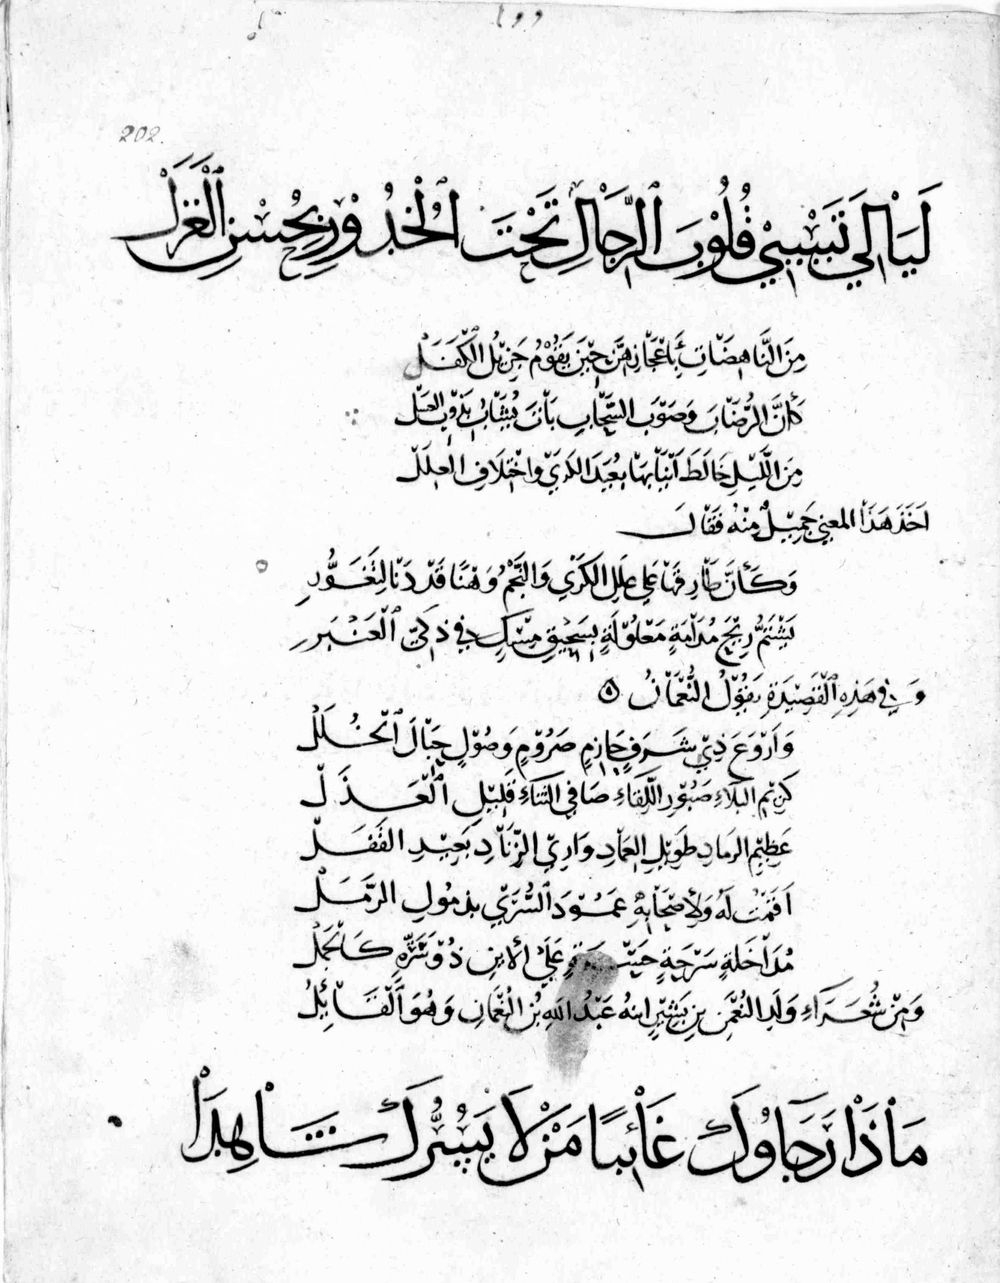 ١٩٩
202.
لَيَالِيَ تَسْبِيْ قُلُوْبَ الرِّجَالِ تَحْتَ الْخُدُوْرِ بِحُسْنِ الْغَزَلْ
مِنَ النَّاهِضَاتِ بِأَعْجَازِهِنَّ حِيْنَ يَقُوْمُ جَزِيْلُ الْكَفَلْ
كَأَنَّ الرُّضَابَ وَصَوْبَ السَّحَابِ بَاتَ يُشَابُ بِذَوْبِ العَسَلْ
مِنَ اللَّيْلِ خَالَطَ أَنْيَابَهَا بُعَيْدَ الكَرَىْ وَاخْتِلَافِ الْعِلَلْ
اَخَذَ هَذَا المعنى جَمِيْلٌ مِنْهُ فَقَالَ
وَكَأَنَّ طَارِقَهَا عَلَى عَلَلِ الْكَرَىْ وَالنَّجْمُ وَهْنًا قَدْ دَنَا لِتَغَوُّرِ
يَشْتَمُّ رِيْحَ مُدَامَةٍ مَعْلُوْلَةٍ بِسَحِيْقِ مِسْكٍ فِيْ ذَكِيِّ الْعَنْبَرِ
وَفِيْ هَذِهِ الْقَصِيْدَةِ يَقُوْلُ النُّعْمَانُ
وَاَرْوَعَ ذِيْ شَرَفٍ حَازِمٍ صَرُوْمٍ وَصُوْلٍ حِبَالَ الْخُلَلْ
كَرِيْمِ البَلَاءِ صَبُوْرِ اللِّقَاءِ صَافِي الثَّنَاءِ قَلِيْلِ الْعَذَلْ
عَظِيْمِ الرمَادِ طَوِيْلِ الْعِمَادِ وَارِي الزِّنَادِ بَعِيْدِ القَفَلْ
اَقَمْتُ لَهُ وَلِأَصْحَابِهِ عَمُوْدَ السُّرَىْ بِذَمُولِ الرَّمَلْ
مُدَاخَلَةٍ سَرْحَةٍ عَلَى الأَيْنِ ذُوْ شِرَّةٍ كَالْجَمَلْ
وَمِنْ شُعَرَاءِ وَلَدِ النُّعْمٰنِ بْنِ بَشِيْرٍ ابنهُ عَبْدُ اللهِ بْنُ النُّعْمَانِ وَهُوَ الْقَائِلُ
مَاْذَا رَجَاوُكَ غَائِبًا مَنْ لَا يَسُرُّكَ شَاهِدَا